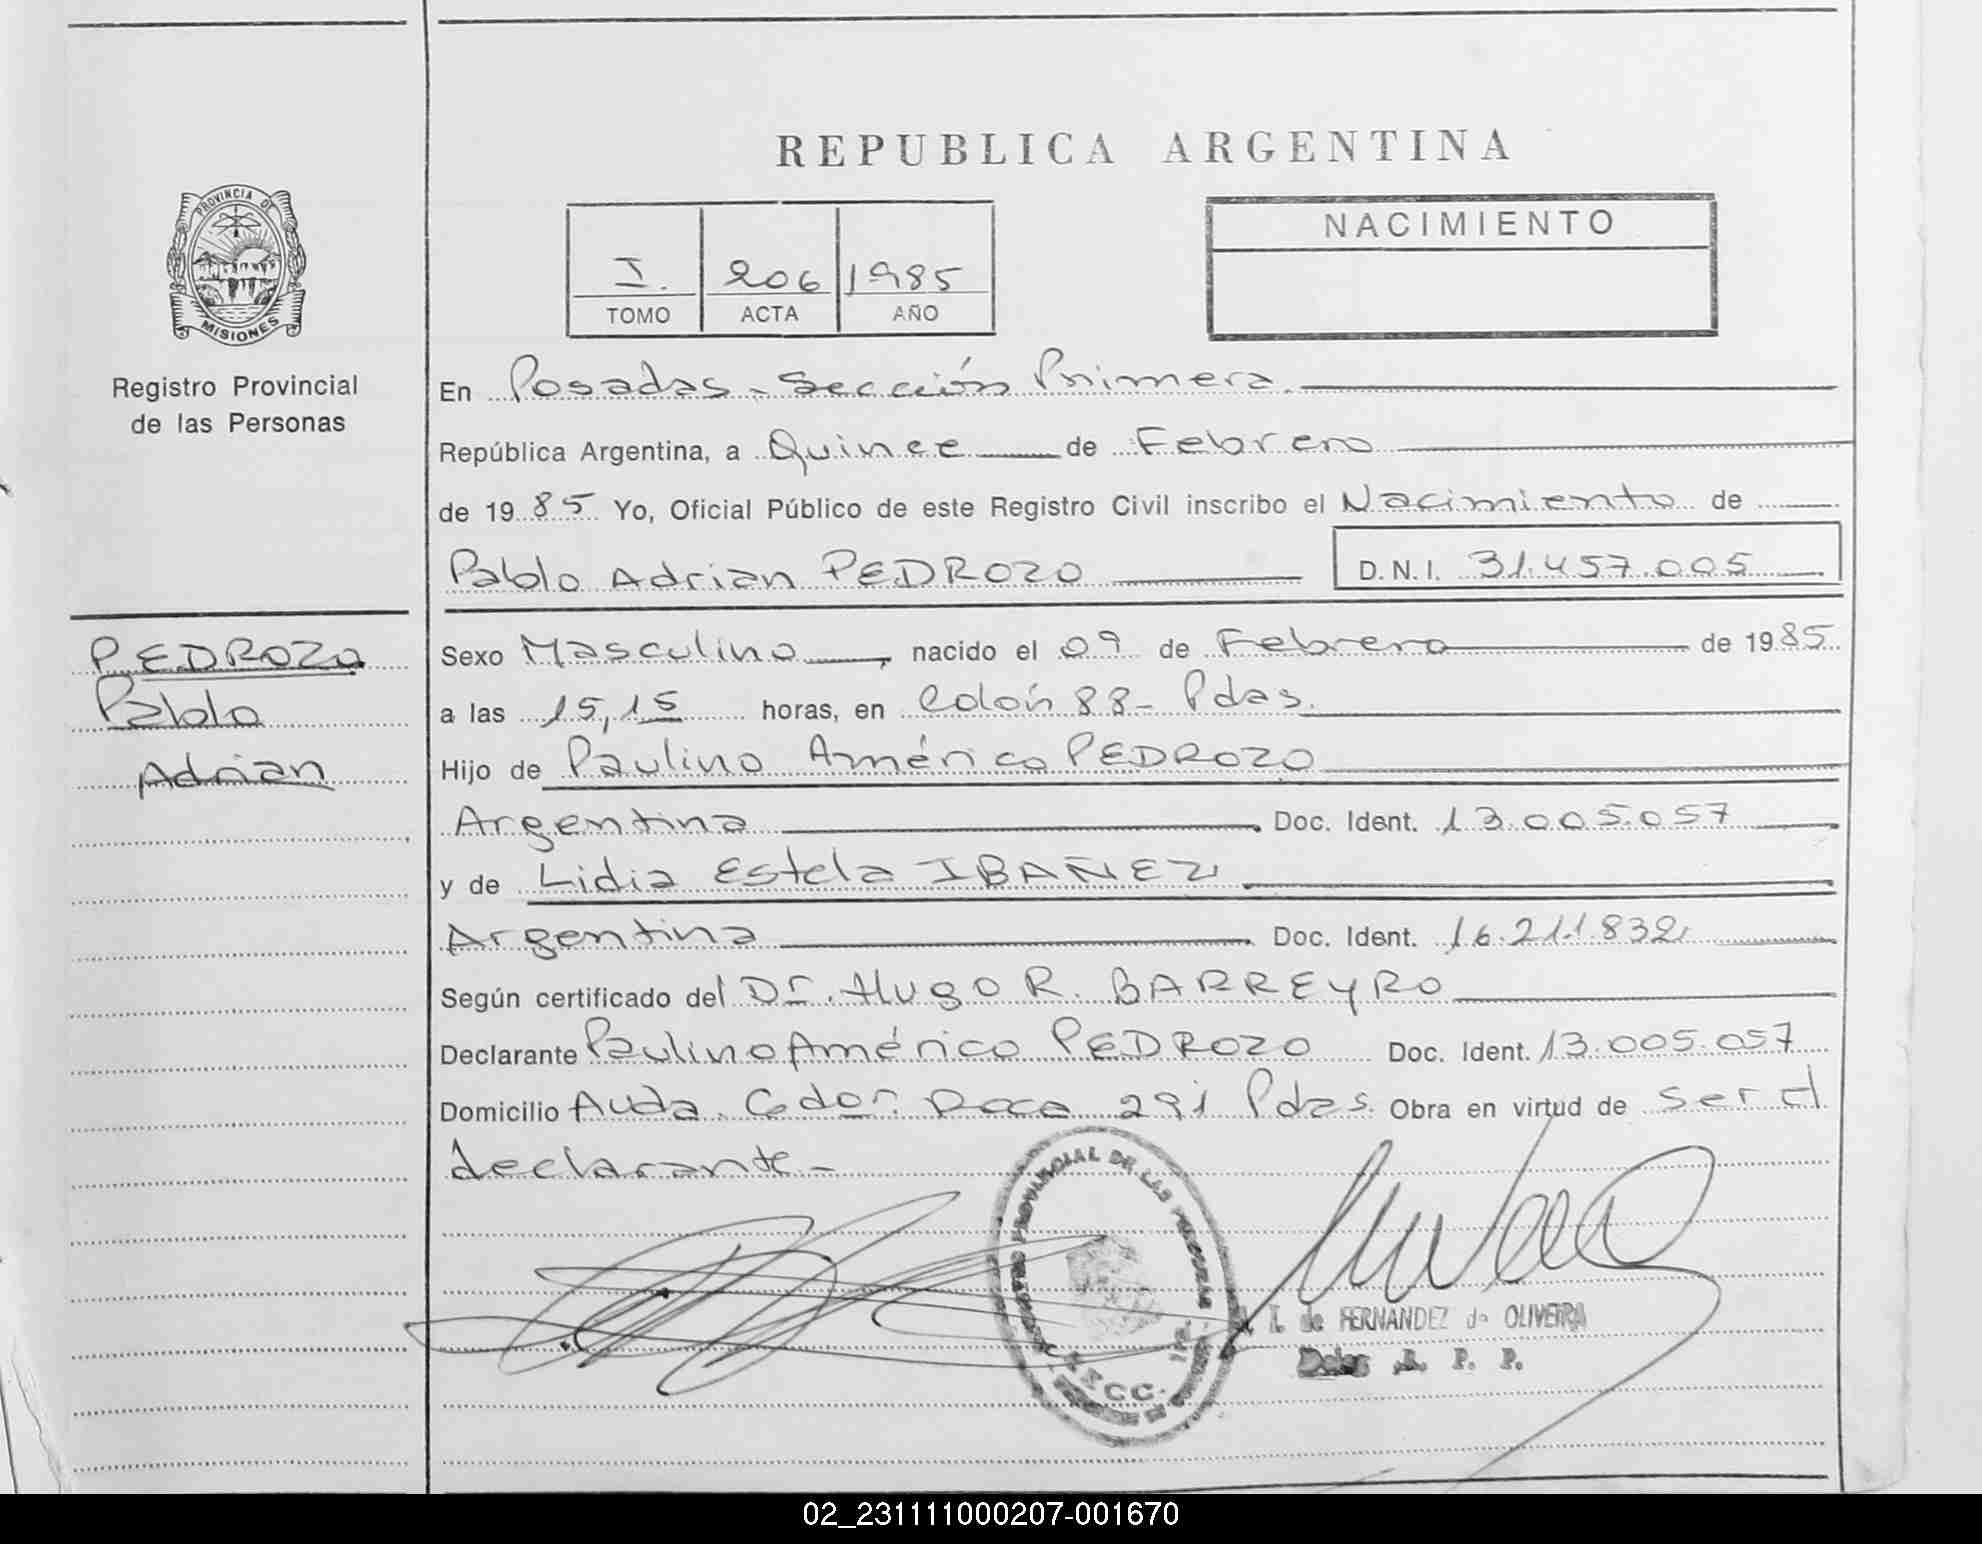 REPUBLICA ARGENTINA
PROVINCIA DE
MISIONES
Registro Provincial
de las Personas
I. 206 1985
TOMO ACTA AÑO
NACIMIENTO
En Posadas - Sección Primera.
República Argentina, a Quince de Febrero
de 1985 Yo, Oficial Público de este Registro Civil inscribo el Nacimiento de
Pablo Adrian PEDROZO D.N.I. 31.457.005
PEDROZO
Pablo
Adrian
Sexo Masculino, nacido el 09 de Febrero de 1985
a las 15,15 horas, en Colón 88 - Pdas.
Hijo de Paulino Américo PEDROZO
Argentina Doc. Ident. 13.005.057
y de Lidia Estela IBAÑEZ
Argentina Doc. Ident. 16.211.832
Según certificado del Dr. Hugo R. BARREYRO
Declarante Paulino Américo PEDROZO Doc. Ident. 13.005.057
Domicilio Avda. Gdor. Roca 291 Pdas. Obra en virtud de ser el
declarante -
PROVINCIAL DE LAS
de FERNANDEZ de OLIVEIRA
R. P. P.
02_231111000207-001670